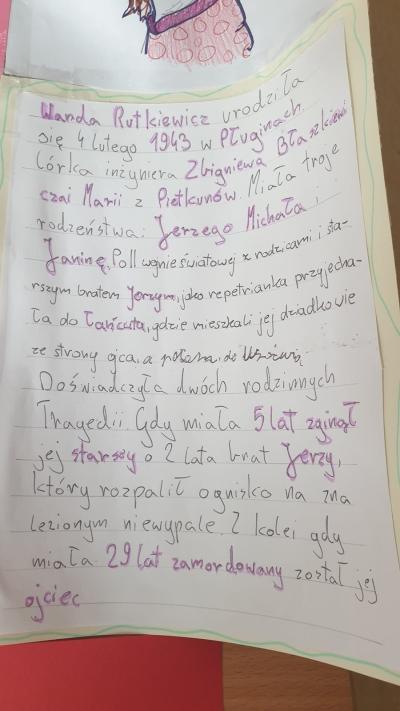 Wanda Rutkiewicz urodziła
się 4 lutego 1943 w Płungianach
Córka inżyniera Zbigniewa Błaszkiewi
cza i Marii z Pietkunów. Miała troje
rodzeństwa: Jerzego Michała i
Janinę. Po II wojnie światowej z rodzicami i sta-
rszym bratem Jerzym, jako repetrianka przyjecha-
ła do Łańcuta, gdzie mieszkali jej dziadkowie
ze strony ojca, a potem do
Doświadczyła dwóch rodzinnych
Tragedii. Gdy miała 5 lat zginął
jej starszy o 2 lata brat Jerzy,
który rozpalił ognisko na zna
lezionym niewypale. Z kolei gdy
miała 29 lat zamordowany został jej
ojciec